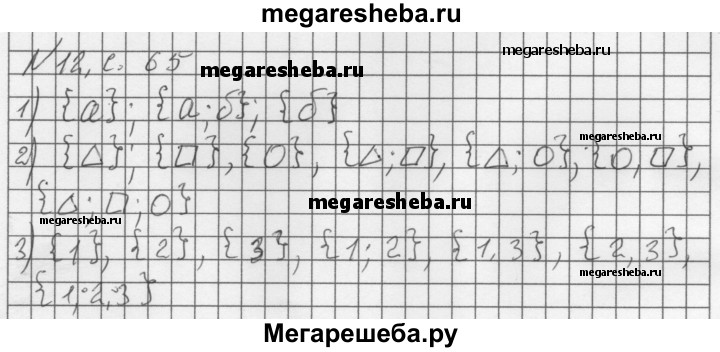 megaresheba.ru
№12, с. 65
megaresheba.ru
megaresheba.ru
1) {а}; {а;б}; {б}
megaresheba.ru
2) {△}; {□}, {○}, {△;□}, {△; ○}, {○,□},
{△;□;○}
megaresheba.ru
megaresheba.ru
3) {1}, {2}, {3}, {1; 2}, {1,3}, {2,3},
megaresheba.ru
{1;2;3}
Мегарешеба.ру